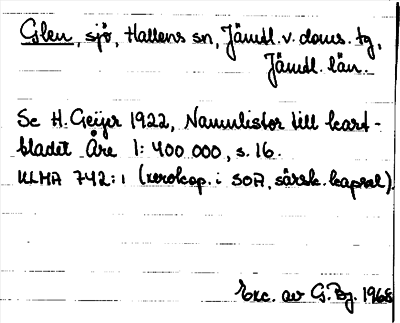 Glen, sjö, Hallens sn, Jämtl. v. doms. tg,
Jämtl. län.
Se H. Geijer 1922, Namnlistor till kart-
bladet Åre 1:400 000, s. 16.
ULMA 742:1 (xerokop. i SOA, särsk. kapsel).
Exc. av G. Bg. 1968